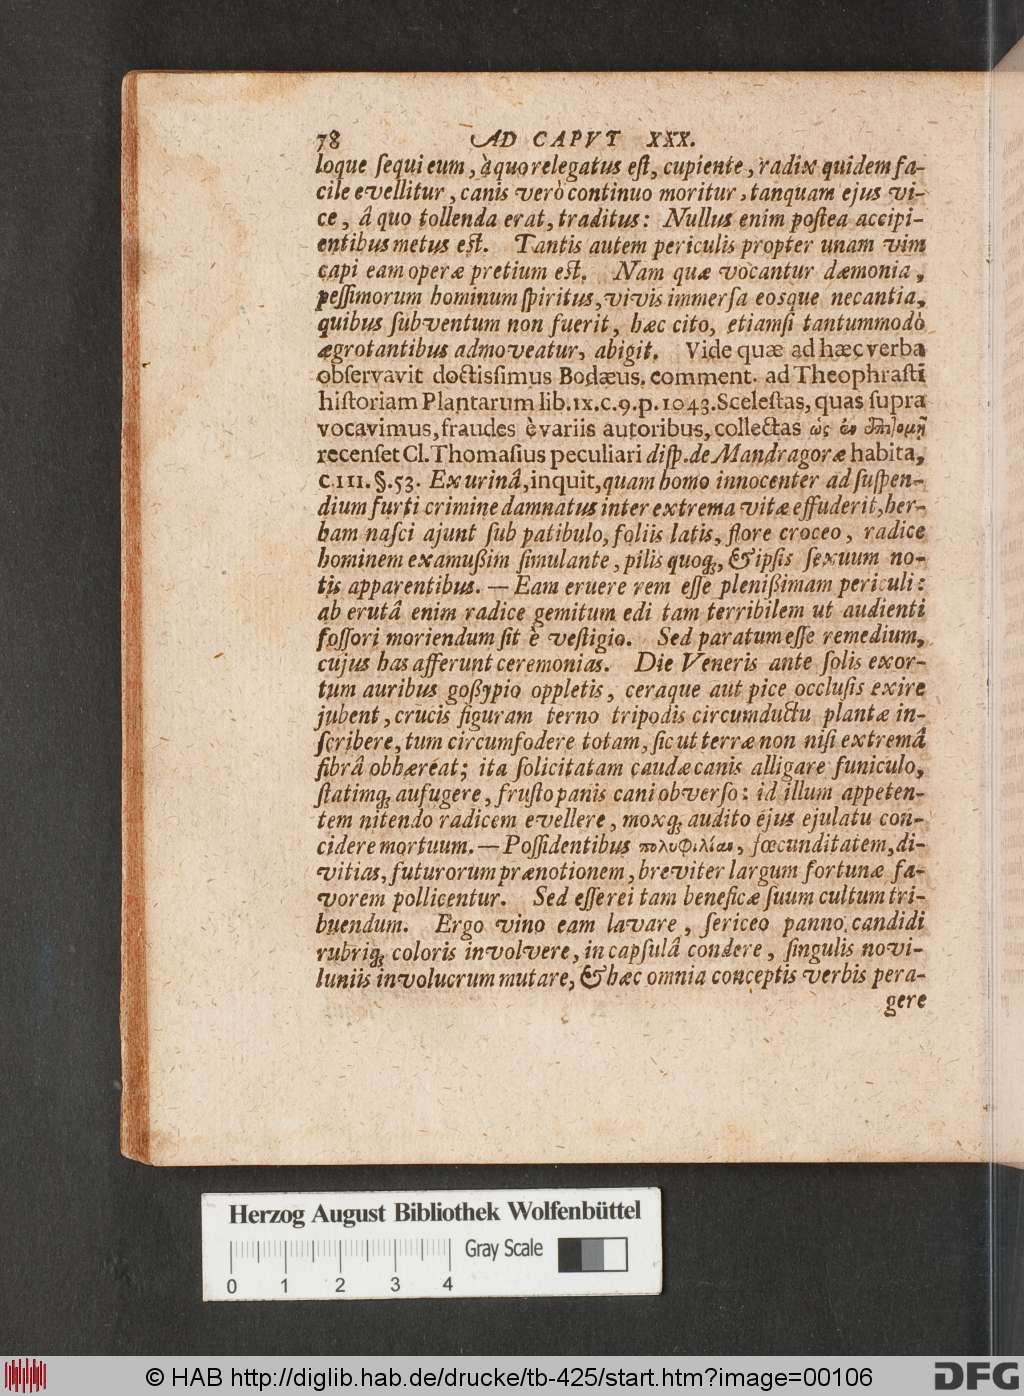 78 AD CAPVT XXX.
loque ſequi eum, à quo relegatus eſt, cupiente, radix quidem fa-
cile evellitur, canis verò continuo moritur, tanquam ejus vi-
ce, â quo tollenda erat, traditus: Nullus enim poſtea accipi-
entibus metus eſt. Tantis autem periculis propter unam vim
capi eam operæ pretium eſt. Nam quæ vocantur dæmonia,
peſſimorum hominum ſpiritus, vivis immerſa eosque necantia,
quibus ſubventum non fuerit, hæc cito, etiamſi tantummodò
ægrotantibus admoveatur, abigit. Vide quæ ad hæc verba
obſervavit doctisſimus Bodæus. comment. ad Theophraſti
hiſtoriam Plantarum lib. IX. c. 9. p. 1043. Sceleſtas, quas ſupra
vocavimus, fraudes è variis autoribus, collectas ὡς ἐν ἐπιτομῇ
recenſet Cl. Thomaſius peculiari diſp. de Mandragoræ habita,
c. III. §. 53. Ex urinâ, inquit, quam homo innocenter ad ſuſpen-
dium furti crimine damnatus inter extrema vitæ effuderit, her-
bam naſci ajunt ſub patibulo, foliis latis, flore croceo, radice
hominem examußim ſimulante, pilis quoq;, & ipſis ſexuum no-
tis apparentibus. — Eam eruere rem eſſe plenißimam periculi:
ab erutâ enim radice gemitum edi tam terribilem ut audienti
foſſori moriendum ſit è veſtigio. Sed paratum eſſe remedium,
cujus has afferunt ceremonias. Die Veneris ante ſolis exor-
tum auribus goßypio oppletis, ceraque aut pice occluſis exire
jubent, crucis figuram terno tripodis circumductu plantæ in-
ſcribere, tum circumfodere totam, ſic ut terræ non niſi extremâ
fibrâ obhæreat; ita ſolicitatam caudæ canis alligare funiculo,
ſtatimq; aufugere, fruſto panis cani obverſo: id illum appeten-
tem nitendo radicem evellere, moxq; audito ejus ejulatu con-
cidere mortuum. — Poſſidentibus πολυφιλίαν, fœcunditatem, di-
vitias, futurorum prænotionem, breviter largum fortunæ fa-
vorem pollicentur. Sed eſſe rei tam beneficæ ſuum cultum tri-
buendum. Ergo vino eam lavare, ſericeo panno candidi
rubriq; coloris involvere, in capſulâ condere, ſingulis novi-
luniis involucrum mutare, & hæc omnia conceptis verbis pera-
gere
Herzog August Bibliothek Wolfenbüttel
Gray Scale
0 1 2 3 4
© HAB http://diglib.hab.de/drucke/tb-425/start.htm?image=00106
DFG